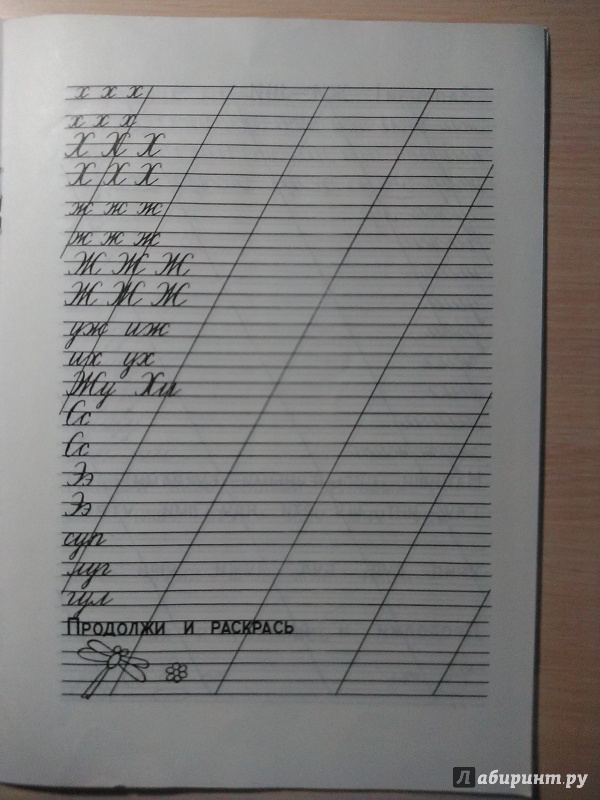 х х х
х х х
Х Х Х
Х Х Х
ж ж ж
ж ж ж
Ж Ж Ж
Ж Ж Ж
уж иж
их ух
Жу Хи
Сс
Сс
Ээ
Ээ
суп
луг
гул
ПРОДОЛЖИ И РАСКРАСЬ
Лабиринт.ру